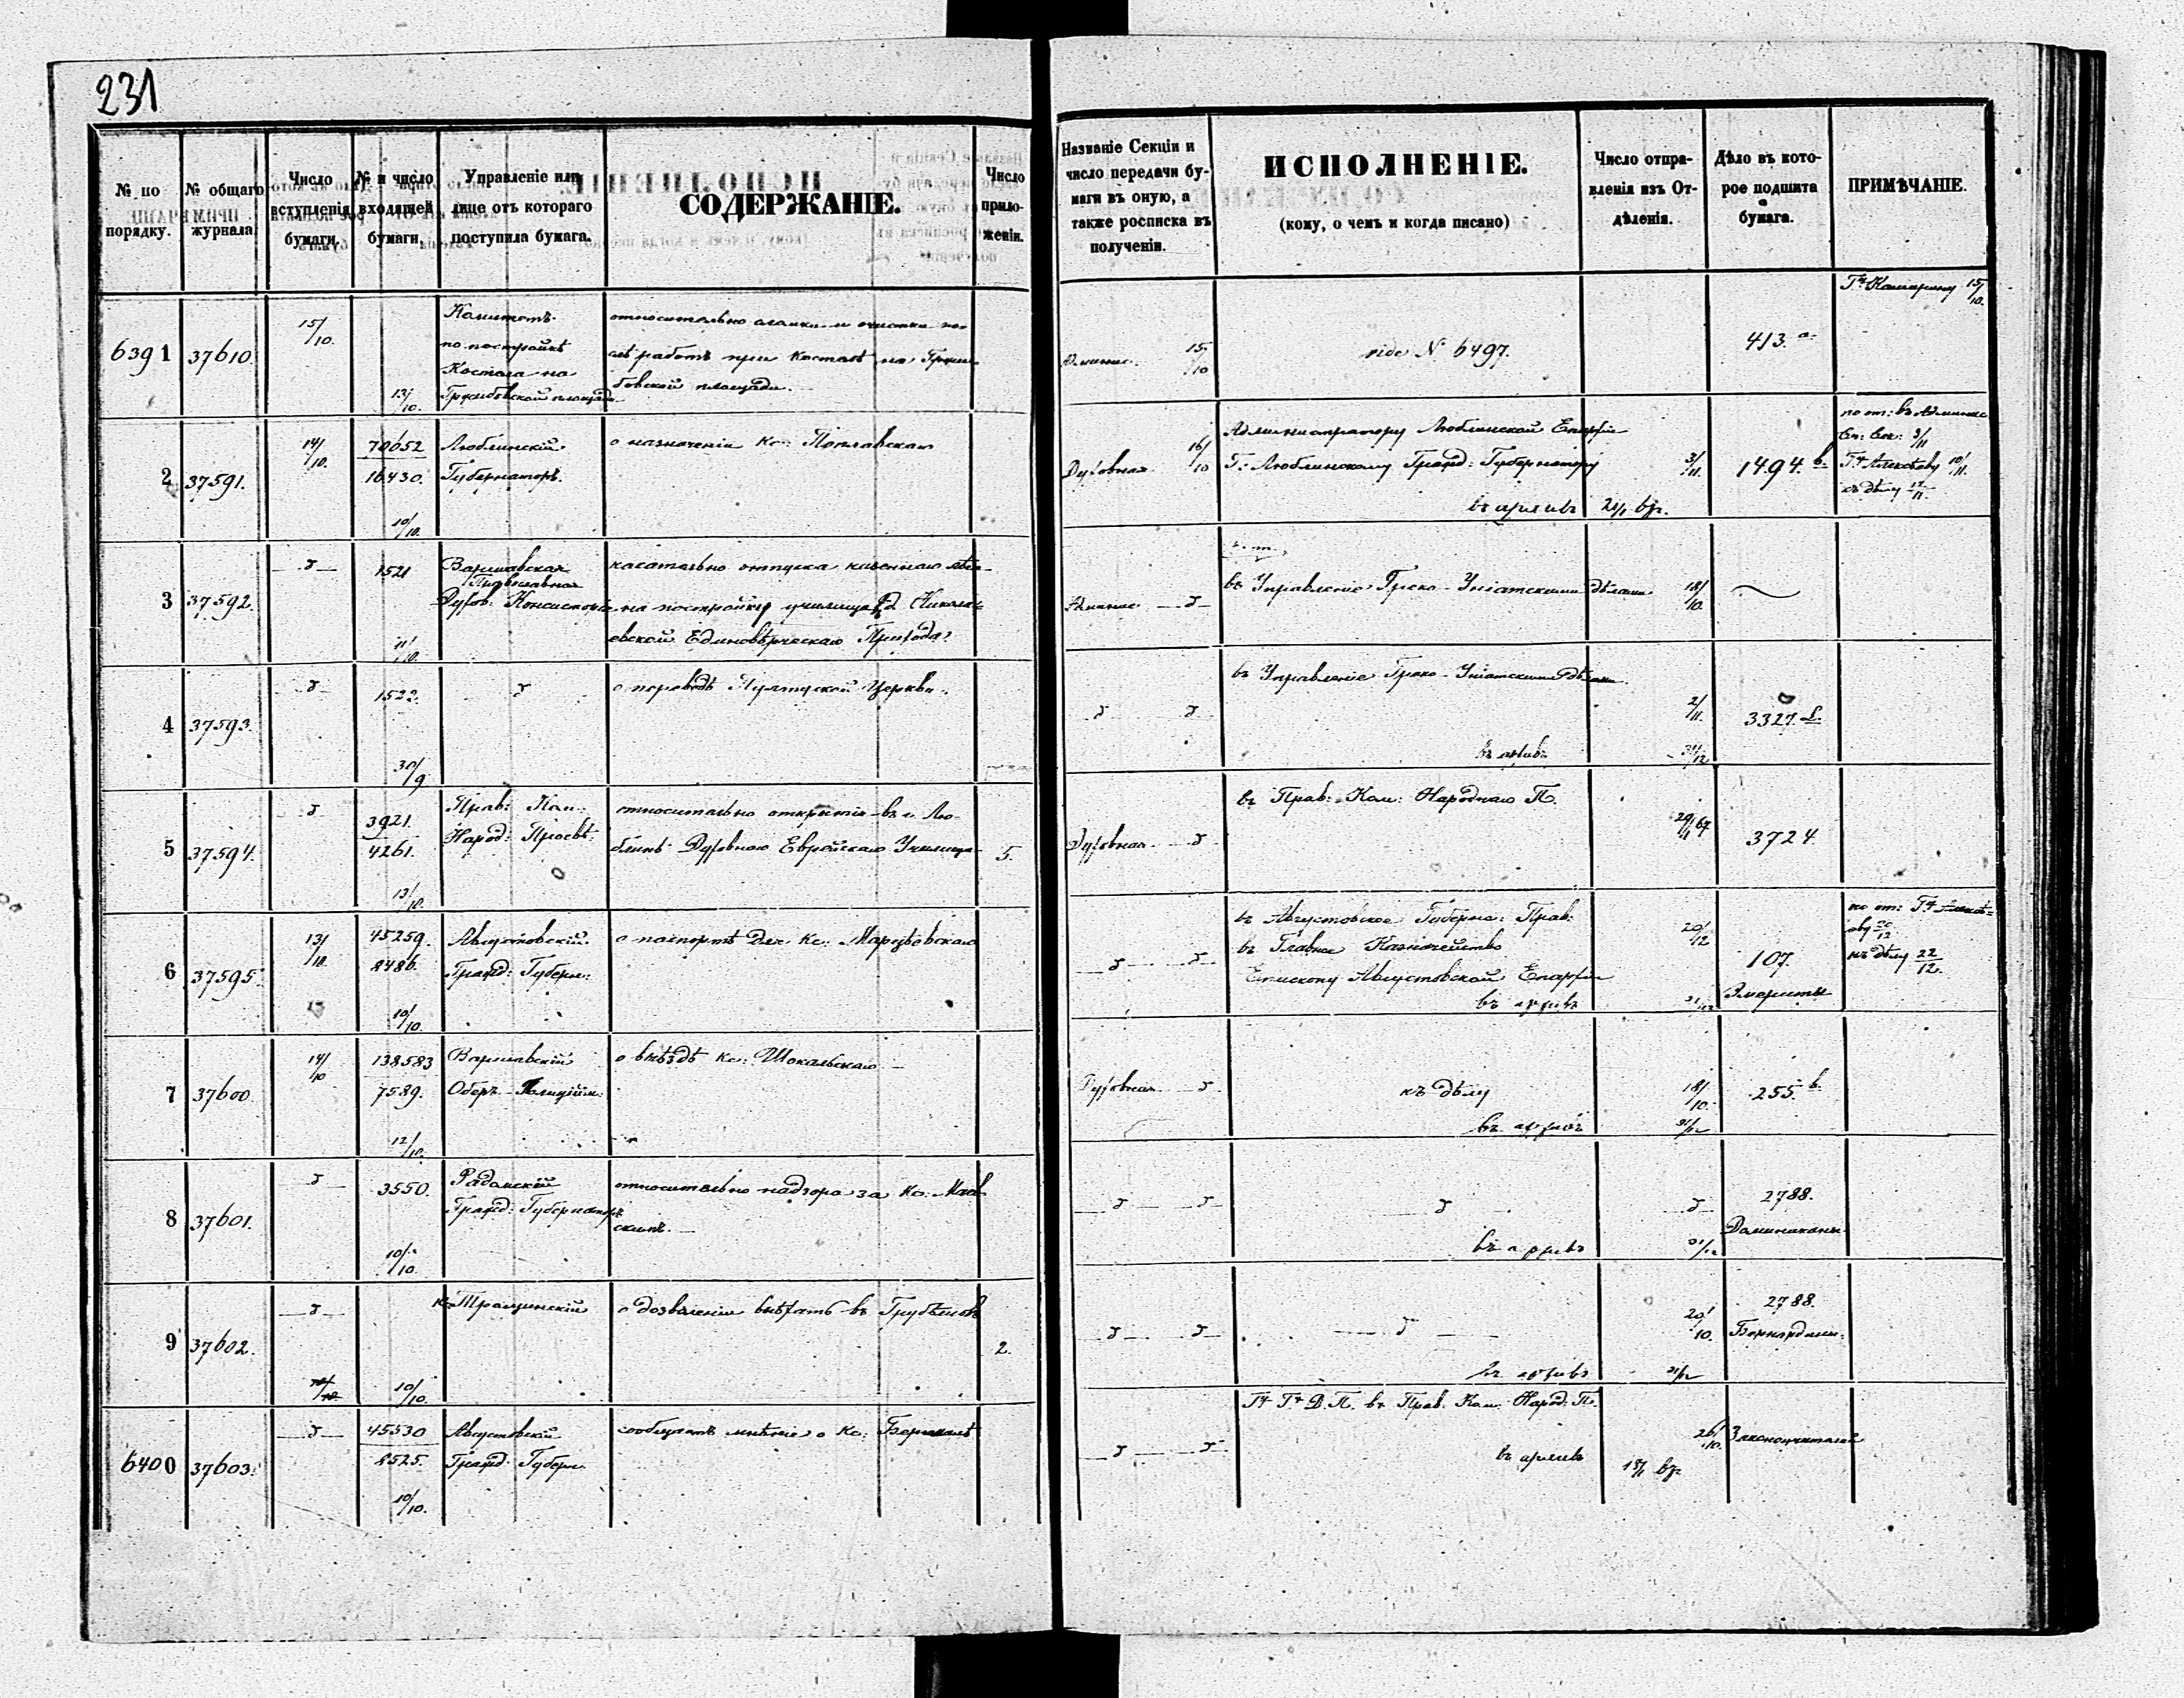 231
№ по порядку.
№ общаго журнала
Число вступленія бумаги.
№ и число входящей бумаги
Управленіе или лице отъ котораго поступила бумага.
СОДЕРЖАНІЕ.
Число прило-женіи.
Названіе Секціи и число передачи бу-маги въ оную, а также росписка въ полученіи.
ИСПОЛНЕНІЕ.
(кому, о чемъ и когда писано)
Число отпра-вленія изъ От-дѣленія.
Дѣло въ кото-рое подшита бумага.
ПРИМѢЧАНІЕ.
6391 37610. 15/10. 13/10.
Комитетъ
по постройкѣ
Костела на
Гржибовской площади
относительно
работъ при костелѣ на Гржи-
бовской площади.
15/10 vide N 6497. 413. a. 15/10.
2 37591. 14/10. 70652 16430. 10/10.
Люблинскій
Губернаторъ.
о назначеніи Кс: Поплавскаго
Духовная 16/10
Администратору Люблинской Епархіи
Г. Люблинскому Гражд: Губернатору 3/11. 1494. b.
въ архивъ
по от: въ Админис
3/11
10/11.
къ дѣлу 12/11.
3 37592. 1521 11/10.
Варшавская
Православная
Духов: Консисторія
касательно отпуска казеннаго лѣса
на постройку училища Никола-
евской Единовѣрческаго Прихода.
въ Управленіе Греко-Уніатскими дѣлами 18/10.
4 37593. 1522. 30/9
о переводѣ Пултуской Церкви.
въ Управленіе Греко-Уніатскими дѣлами 2/11. 3327.
въ архивъ 31/12
5 37594. 3921. 4261. 13/10.
Прав: Ком:
Народ: Просвѣ:
относительно открытія въ г. Лю-
блинѣ Духовнаго Еврейскаго Училища 5.
Духовная
въ Прав: Ком: Народнаго П. 29/1 67 3724.
6 37595. 13/10. 45259. 8486. 10/10.
Августовскій
Гражд: Губерн:
о паспортѣ для Кс:
въ Августовское Губерн: Прав: 20/12
въ Главное Казначейство
Епископу Августовской Епархіи
въ архивъ 31/12
107.
Эмериты
по от:
къ дѣлу 22/12.
7 37600. 14/10 138583 7589. 12/10.
Варшавскій
Оберъ-Полиційм:
о выѣздѣ Кс: Шокальскаго
Духовная
къ дѣлу 18/10. 255. b.
въ архивъ 31/12
8 37601. 3550. 10/10.
Радомскій
Гражд: Губернаторъ
относительно надзора за Кс:
скимъ.
въ архивъ 31/12
2788.
Доминиканы
9 37602. 10/10.
о дозволеніи выѣхать въ Грубешовъ 2.
20/10.
въ архивъ 31/12
2788.
Бернардины
6400 37603. 45530 8525. 10/10.
Августовскій
Гражд: Губерн.
сообщаетъ мнѣніе о Кс:
Д. П. въ Прав. Ком. Народ. П.
въ архивъ
26/10.
Законоучителей